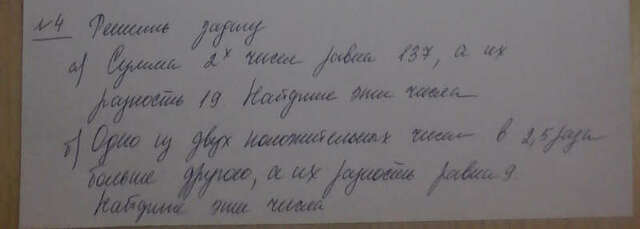 №4 Решить задачу
а) Сумма 2х чисел равна 137, а их
разность 19. Найдите эти числа
б) Одно из двух положительных чисел в 2,5 раза
больше другого, а их разность равна 9.
Найдите эти числа